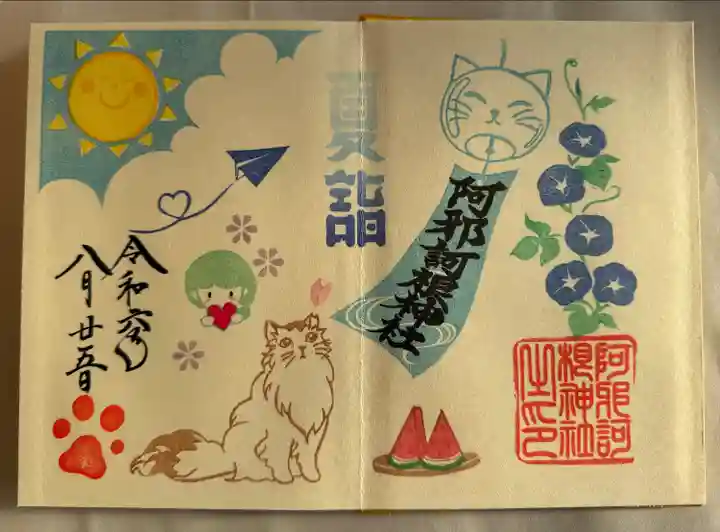 夏詣
阿邪訶根神社
令和六年
八月廿五日
阿邪訶
根神社
之印